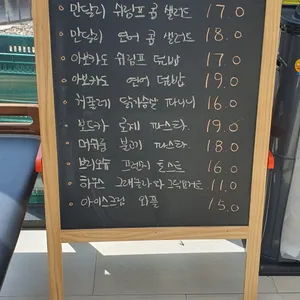 만달리 쉬림프 콥 샐러드 17.0
만달리 연어 콥 샐러드 18.0
아보카도 쉬림프 덮밥 17.0
아보카도 연어 덮밥 19.0
치폴레 닭가슴살 파니니 16.0
보드카 로제 파스타 19.0
머쉬룸 불고기 파스타 18.0
브리오슈 프렌치 토스트 16.0
하우스 그래놀라와 그릭요거트 11.0
아이스크림 와플 15.0